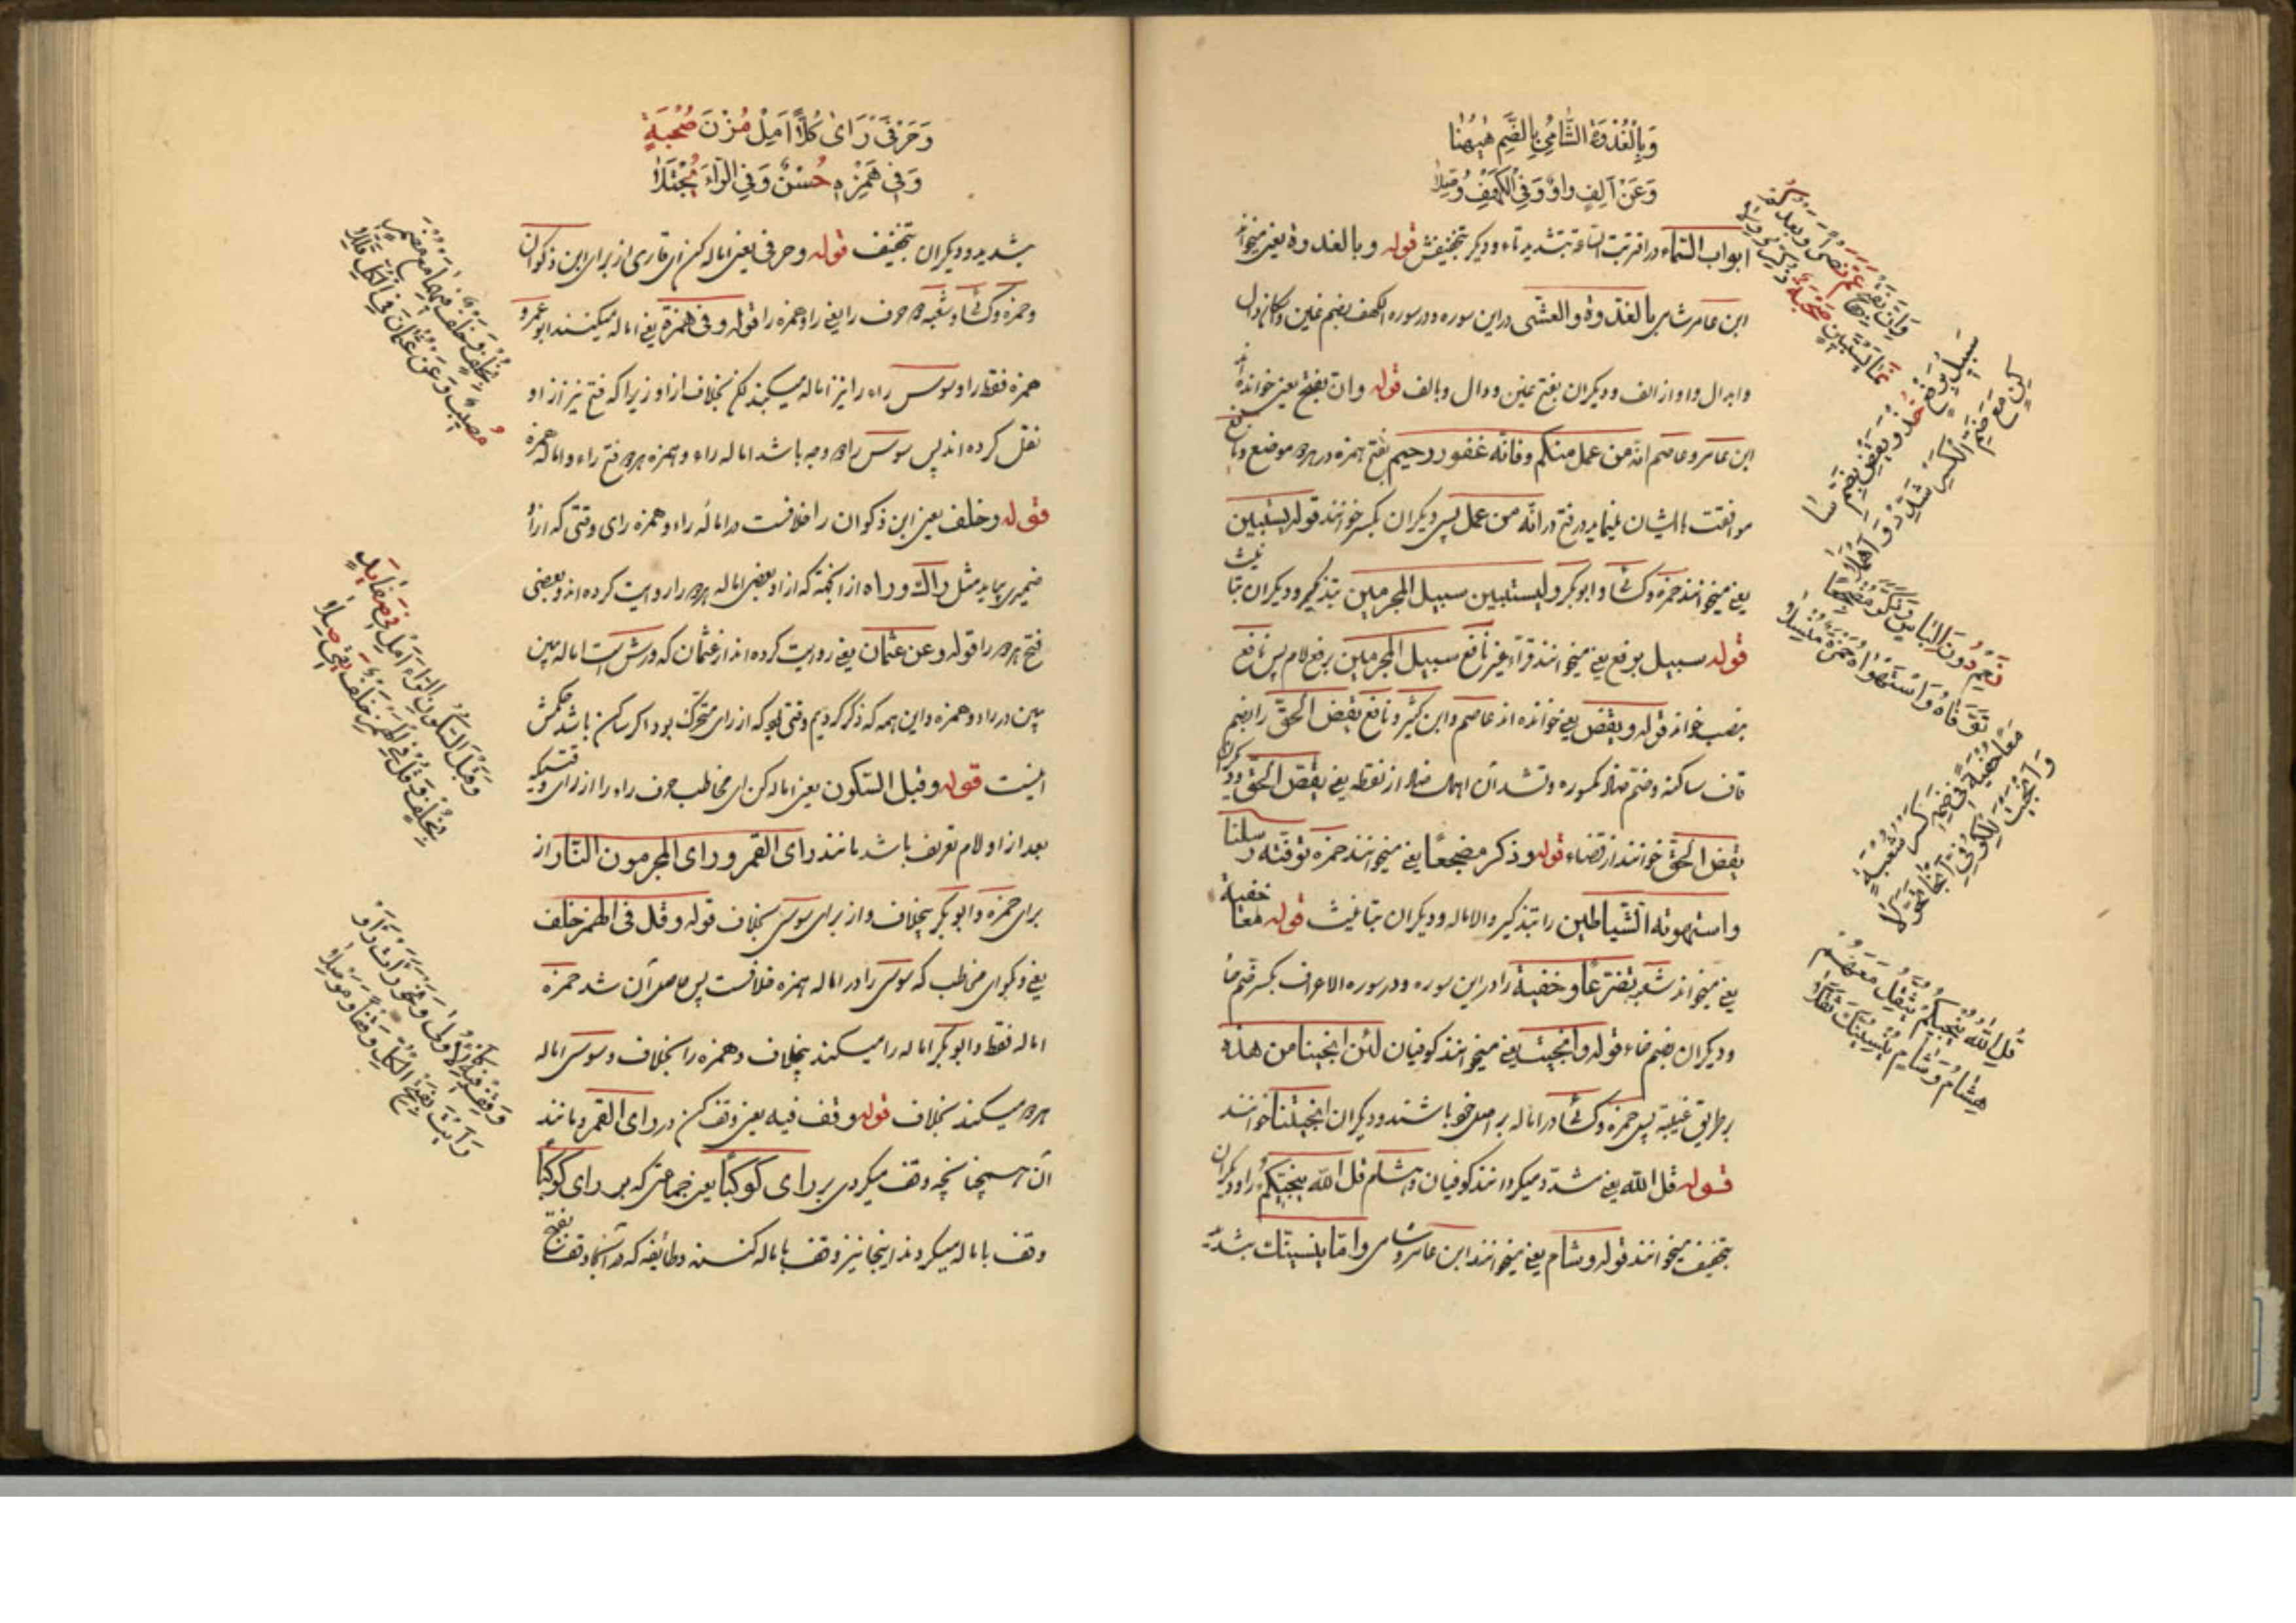 وَبِالْغُدْوَةِ الشَّامِيُّ بِالضَّمِّ هٰهُنَا
وَعَنْ اَلِفٍ وَاوٌ وَفِي الْكَهْفِ وَصَّلَا
ابواب السّماء در اقتربت الساعة بتشدید تاء و دیگر بتخفیفش قوله وبالغدوة یعنی میخواند
ابن عامر شامی بالغدوة والعشی در این سوره و در سوره الکهف بضم غین و اسکان دال
وابدال واو از الف و دیگران بفتح غین و دال و بالف قوله وان بفتح یعنی خوانده‌اند
ابن عامر و عاصم انّه من عمل منکم وفانّه غفور رحیم بفتح همزه در هر دو موضع و نافع
موافقت باایشان مینماید در فتح در انّه من عمل پس دیگران بکسر خوانند قوله یستبین
یعنی میخوانند حمزه و کسائی و ابوبکر ولیستبین سبیل المجرمین بتذکیر و دیگران بتانیث
قوله سبیل برفع یعنی میخوانند قراء غیر نافع سبیل المجرمین برفع لام پس نافع
بنصب خواند قوله ویقض یعنی خوانده‌اند عاصم و ابن کثیر و نافع یقص الحقّ را بضم
قاف ساکنه وضم ضاد کمسوره وتشد آن اهمال ضاد از نقطه یعنی یقصّ الحقّ و دیگران
یقض الحقّ خوانند از قضاء قوله وذکر مضجعًا یعنی میخوانند حمزه توفته رسلنا
واستهوته الشّیاطین را بتذکیر والاماله و دیگران بتانیث قوله معًا خفیة
یعنی میخواند شعبه تضرّعًا وخفیة را در این سوره و در سوره الاعراف بکسر ضم خا
و دیگران بضم خاء قوله وانجیت یعنی میخوانند کوفیان لئن انجینا من هذه
بر طریق غیبة پس حمزه و کسائی در اماله بر اصل خود باشند و دیگران انجیتنا خوانند
قوله قل الله یعنی مشدّد میگردانند کوفیان و هشام قل الله ینجّیکم را و دیگران
بتخفیف میخوانند قوله وشام یعنی میخوانند ابن عامر شامی وامّا ینسینّک بتشدید
وَاَنَّ بِفَتْحٍ عَمَّ نَصْرًا وَبَعْدُ كَمْ
نَمَا يَسْتَبِينَ صُحْبَةٌ ذَكَّرُوا وِلَا
سَبِيلَ بِرَفْعٍ خُذْ وَيَقْضِ بِضَمِّ سَا
كِنٍ مَعَ ضَمِّ الْكَسْرِ شَدِّدْ وَاَهْمِلَا
نَعَمْ دُونَ اِلْبَاسٍ وَذَكَّرَ مُضْجِعًا
تَوَفَّاهُ وَاسْتَهْوَاهُ حَمْزَةُ مُنْسِلَا
مَعًا خُفْيَةً فِي ضَمِّهِ كَسْرُ شُعْبَةٍ
وَاَنْجَيْتَ لِلْكُوفِيِّ اَنْجَا تَحَوَّلَا
قُلِ اللّٰهُ يُنْجِيكُمْ يُثَقِّلُ مَعْهُمُ
هِشَامٌ وَشَامٍ يُنْسِيَنَّكَ ثَقَّلَا
وَحَرْفَيْ رَاٰى كُلًّا اَمِلْ مُزْنَ صُحْبَةٍ
وَفِي هَمْزِهِ حُسْنٌ وَفِي الرَّاءِ يُجْتَلَا
بشدید و دیگران بتخفیف قوله وحرفی یعنی اماله کن ای قاری از برای ابن ذکوان
وحمزه و کسائی و شعبه هر دو حرف را یعنی را و همزه را قوله وفی همزة یعنی اماله میکنند ابو عمرو
همزه فقط را و سوسی راء را نیز اماله میکند لکن بخلاف از او زیرا که فتح نیز از او
نقل کرده‌اند پس سوسی را دو وجه باشد اماله راء و همزه هر دو فتح راء و اماله همزه
قوله وخلف یعنی ابن ذکوان را خلافست در اماله راء و همزه رای وقتی که از او
ضمیری بیاید مثل راک و راه از آنجهة که از او بعضی اماله هر دو را روایت کرده‌اند و بعضی
فتح هر دو را قوله وعن عثمان یعنی روایت کرده‌اند از عثمان که ورش است اماله بین
بین در راء و همزه و این همه که ذکر کردیم وقتی بود که از رای متحرک بود اگر ساکن باشد حکمش
اینست قوله وقبل السّکون یعنی اماله کن ای مخاطب حرف راء را از رای وقتیکه
بعد از او لام تعریف باشد مانند رای القمر ورای المجرمون النّار از
برای حمزه و ابوبکر بیخلاف و از برای سوسی بخلاف قوله وقل فی الهمز خلف
یعنی و بگو ای مخاطب که سوسی را در اماله همزه خلافست پس حاصل آن شد حمزه
اماله فقط و ابوبکر اماله را میکند بیخلاف و همزه را بخلاف و سوسی اماله
هر دو میکند بخلاف قوله وقف فیه یعنی وقف کن در رای القمر و مانند
آن همچنانچه وقف میکردی بر رای کوکبًا یعنی جماعتی که بر رای کوکبًا
وقف باماله میکردند اینجا نیز وقف باماله کنند و طائفه که در آنجا وقف بفتح
بِخُلْفٍ وَخُلْفٌ فِيهِمَا مَعَ مُضْمَرٍ
مُصِيبٌ وَعَنْ عُثْمَانَ فِي الْكُلِّ قَلَّلَا
وَقَبْلَ السُّكُونِ الرَّاءَ اَمِلْ فِي صَفَا يَدٍ
بِخُلْفٍ وَقُلْ فِي الْهَمْزِ خُلْفٌ يَقِي صِلَا
وَقِفْ فِيهِ كَالْاُولٰى وَنَحْوُ رَاَتْ رَاَوْ
رَاَيْتَ بِفَتْحِ الْكُلِّ وَقْفًا وَمَوْصِلَا